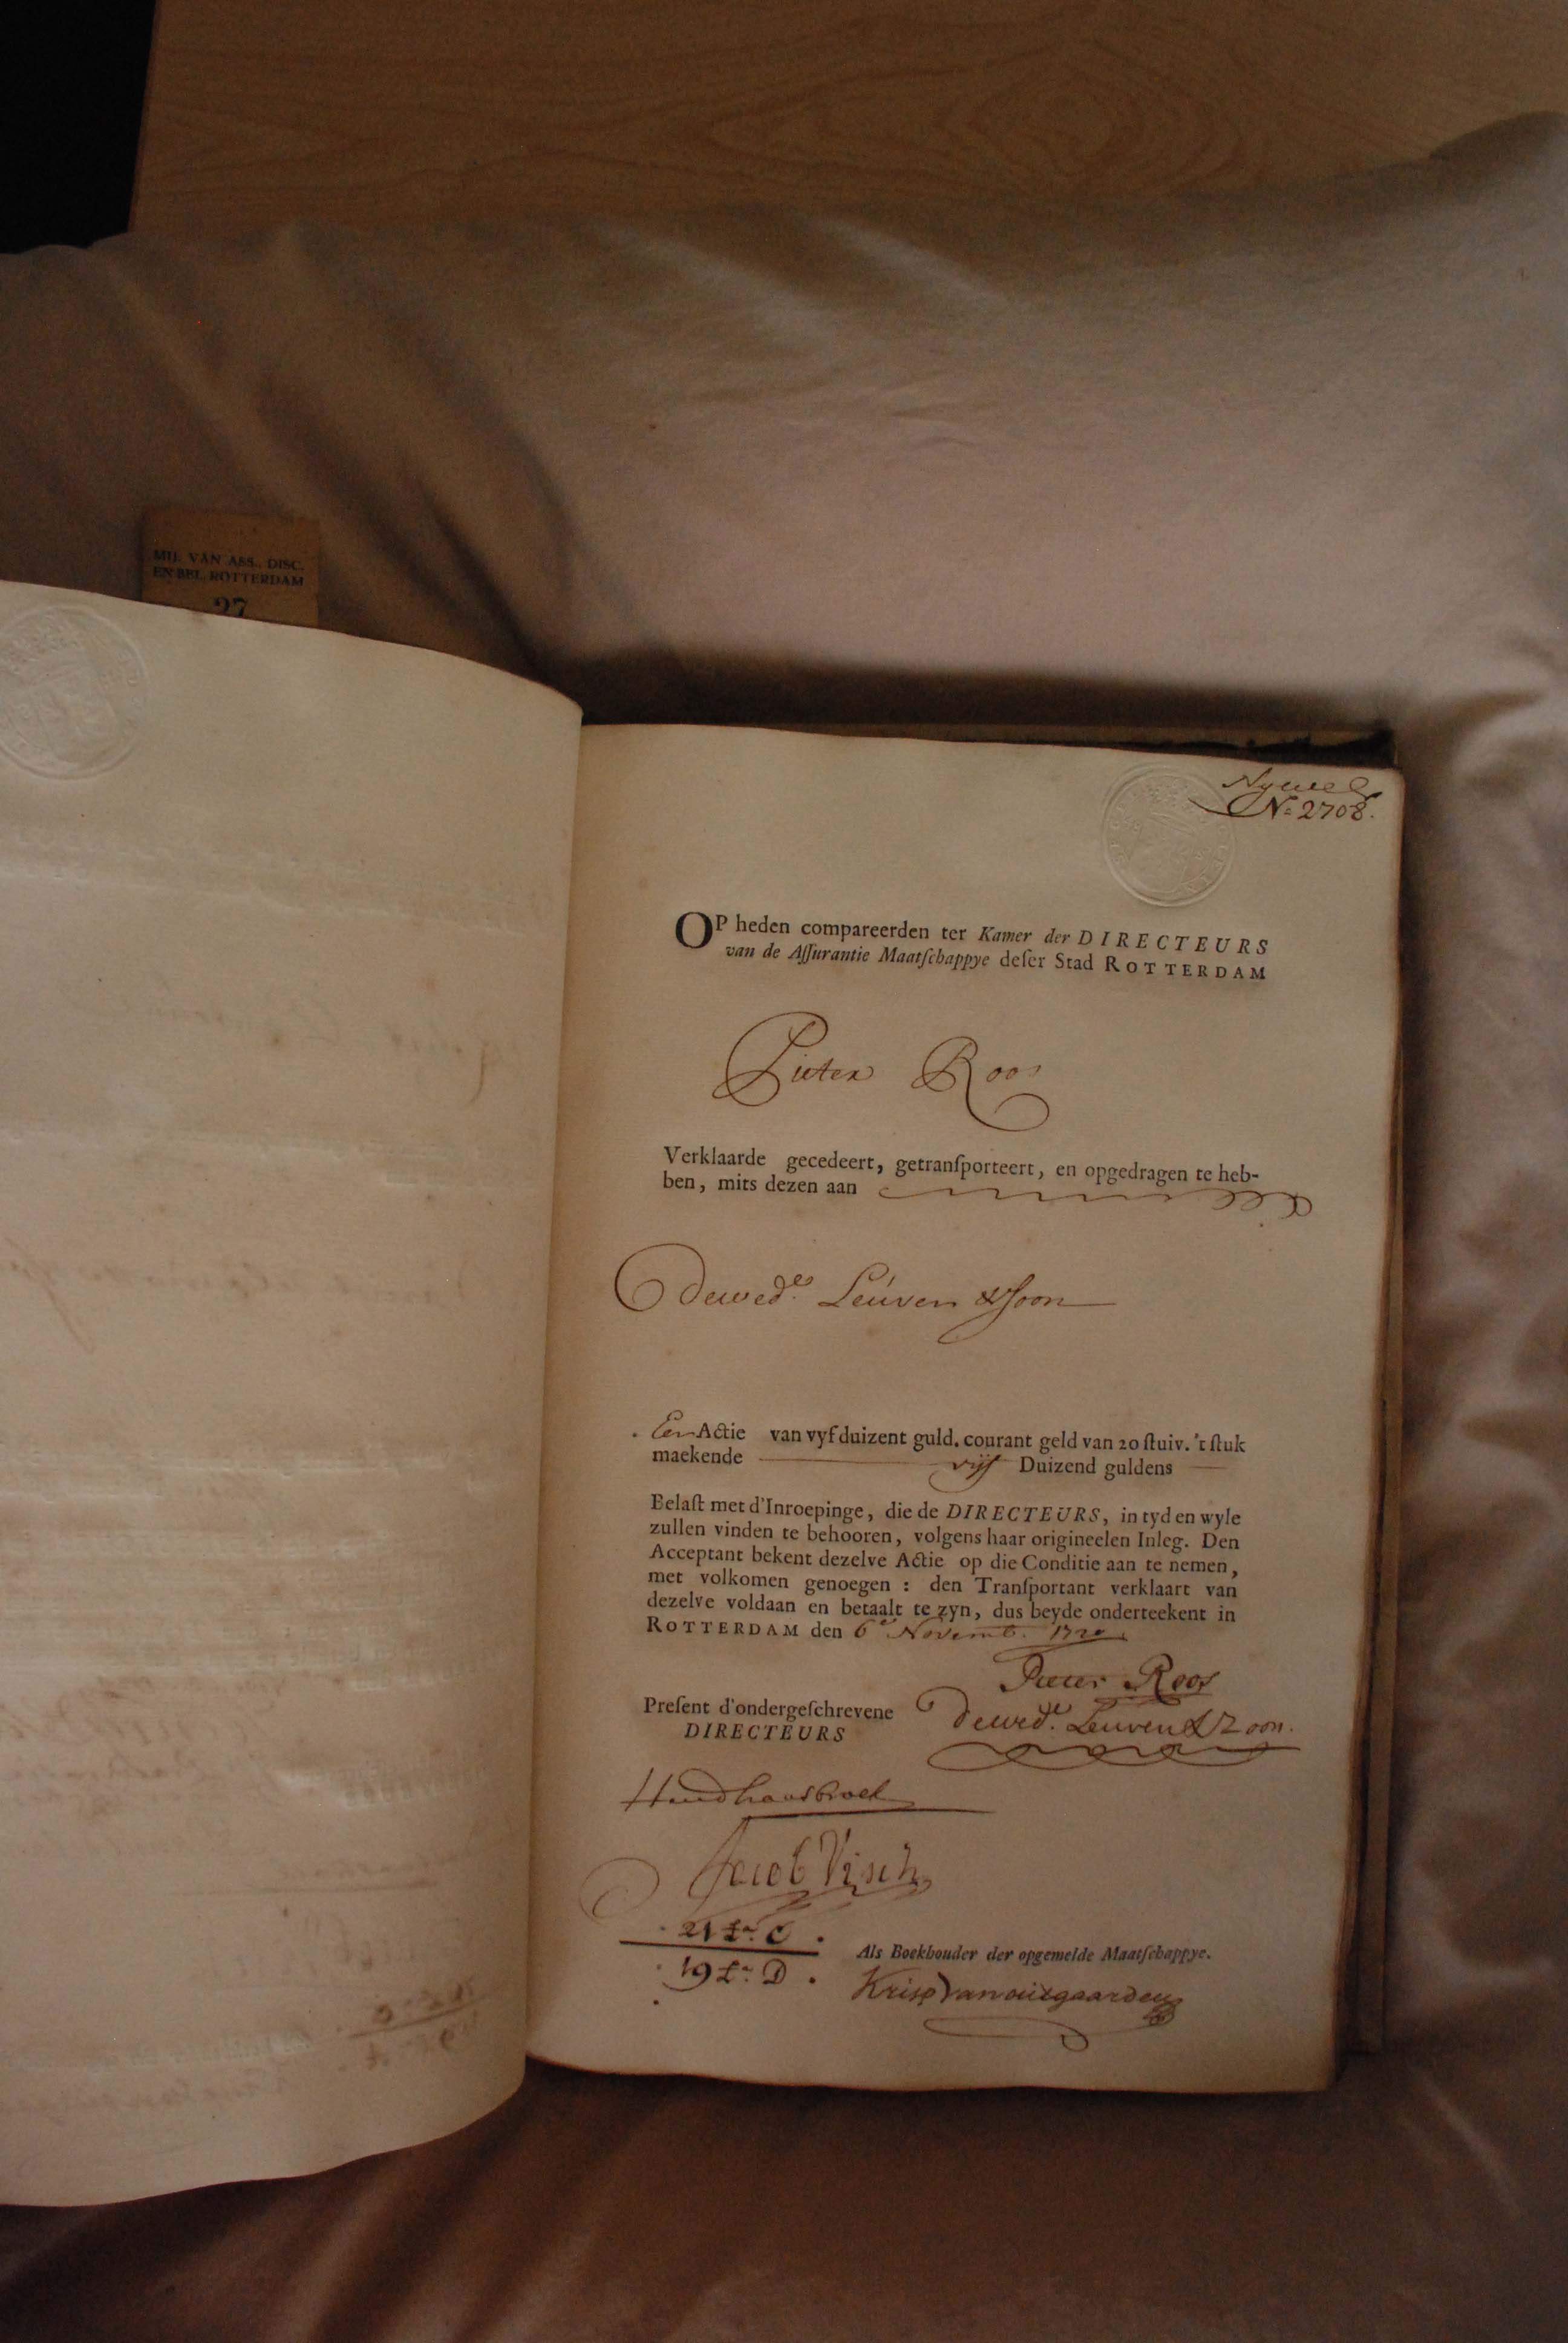 MIJ. VAN ASS., DISC.
EN BEL. ROTTERDAM
27
Nº 2708.
OP heden compareerden ter Kamer der DIRECTEURS
van de Aſſurantie Maatſchappye deſer Stad ROTTERDAM
Pieter Roos
Verklaarde gecedeert, getranſporteert, en opgedragen te heb-
ben, mits dezen aan
De wedᵉ. Leuven & Soon
Een Actie van vyf duizent guld. courant geld van 20 ſtuiv. 't ſtuk
maekende vijf Duizend guldens
Belaſt met d'Inroepinge, die de DIRECTEURS, in tyd en wyle
zullen vinden te behooren, volgens haar origineelen Inleg. Den
Acceptant bekent dezelve Actie op die Conditie aan te nemen,
met volkomen genoegen : den Tranſportant verklaart van
dezelve voldaan en betaalt te zyn, dus beyde onderteekent in
ROTTERDAM den 6ᵉ Novemb. 1720
Pieter Roos
Preſent d'ondergeſchrevene
DIRECTEURS
De wedᵉ. Leuven & Zoon.
Jacob Visch
21 Lʳ. C.
19 Lʳ. D.
Als Boekhouder der opgemelde Maatſchappye.